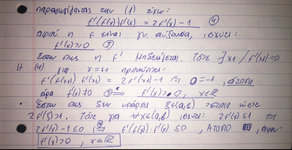 παραγωγίζοντας την (1) έχω:
f'(f(x)) f'(x) = 2f'(x) - 1
αφού η f είναι γν. αύξουσα, ισχύει:
f'(x) ≥ 0
Έστω πως η f' μηδενίζεται. Τότε ∃ x / f'(x) = 0
για x = x προκύπτει:
f'(f(x)) f'(x) = 2f'(x) - 1 ⇔ 0 = -1, άτοπο
άρα f'(x) ≠ 0 f'(x) > 0, x∈ℝ
Έστω πως δεν υπάρχει ξ∈(α,β) τέτοιο ώστε
2f'(ξ) > 1, τότε για ∀x∈(α,β) ισχύει: 2f'(x) ≤ 1 ⇔
2f'(x) - 1 ≤ 0 ⇔ f'(f(x)) · f'(x) ≤ 0, ΑΤΟΠΟ
f'(x) > 0, x∈ℝ